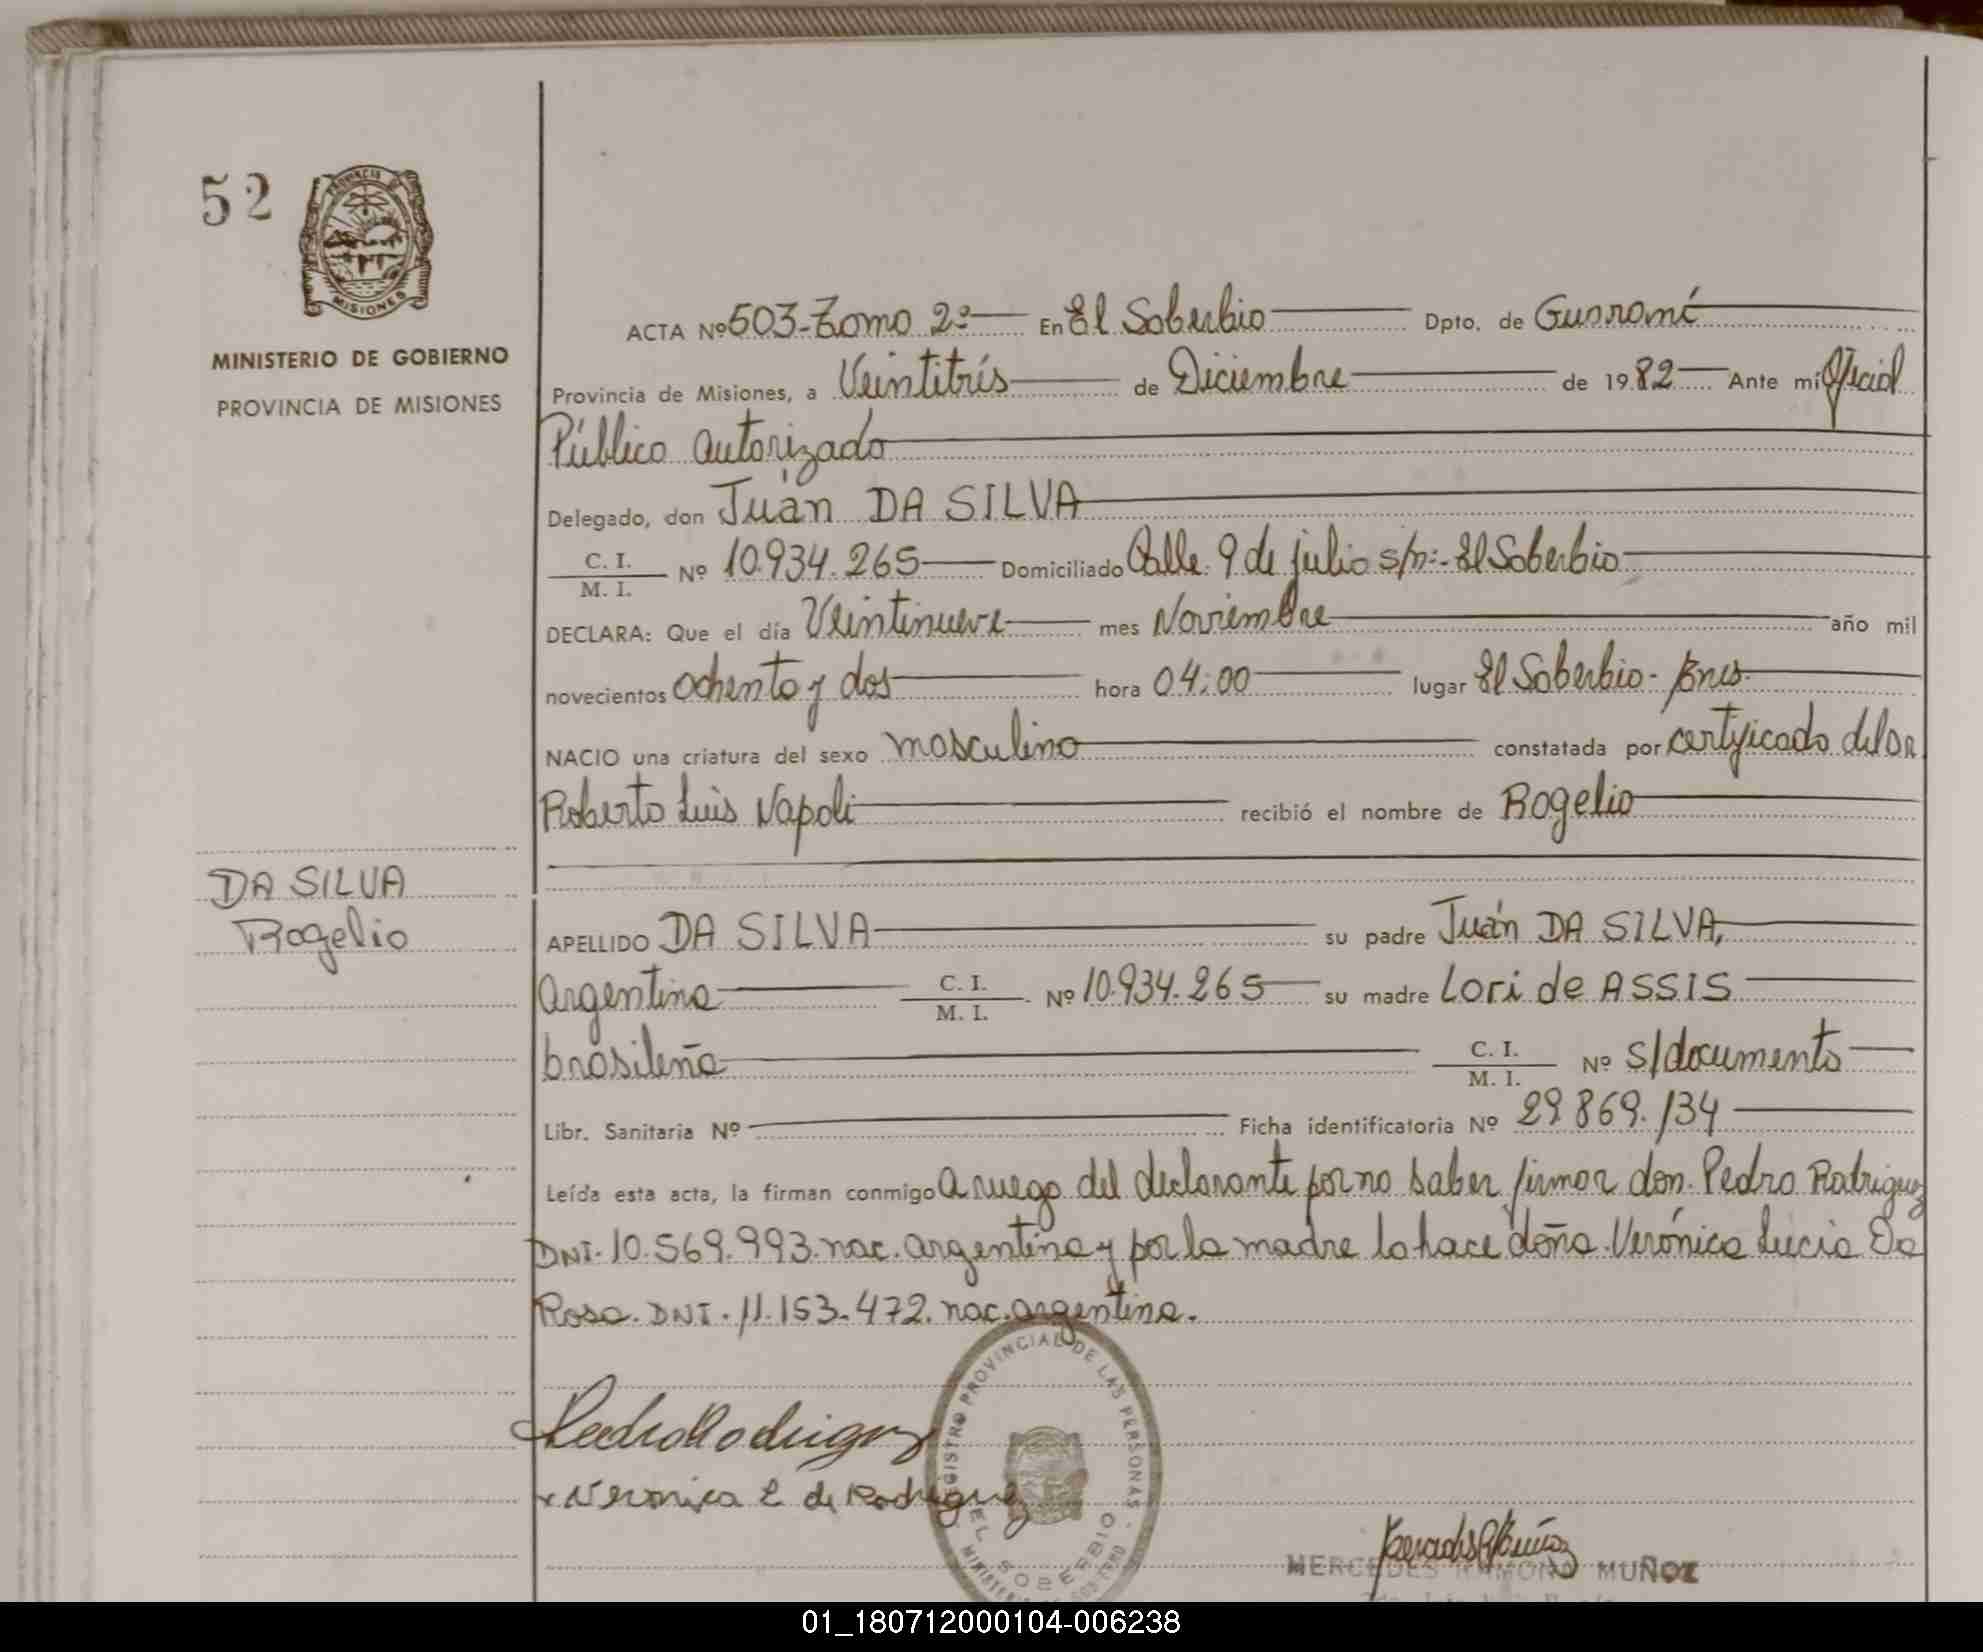 52
PROVINCIA DE
MISIONES
MINISTERIO DE GOBIERNO
PROVINCIA DE MISIONES
ACTA Nº 503-Tomo 2º En El Soberbio Dpto. de Guaraní
Provincia de Misiones, a Veintitrés de Diciembre de 1982 Ante mí Oficial
Público autorizado
Delegado, don Juán DA SILVA
C. I.
M. I. Nº 10.934.265 Domiciliado Calle 9 de julio s/n:- El Soberbio
DECLARA: Que el día Veintinueve mes Noviembre año mil
novecientos ochenta y dos hora 04:00 lugar El Soberbio-
NACIO una criatura del sexo masculino constatada por certificado del DR
Roberto Luis Napoli recibió el nombre de Rogelio
DA SILVA
Rogelio
APELLIDO DA SILVA su padre Juán DA SILVA,
argentina C. I.
M. I. Nº 10.934.265 su madre Lori de ASSIS
brasileña C. I.
M. I. Nº s/documento
Libr. Sanitaria Nº Ficha identificatoria Nº 29.869.134
Leída esta acta, la firman conmigo a ruego del declarante por no saber firmar don. Pedro Rodriguez
DNI. 10.569.993. nac. argentina y por la madre lo hace doña. Verónica Lucia Da
Rosa. DNI. 11.153.472. nac. argentina.
Pedro Rodriguez
Veronica L de Rodriguez
REGISTRO PROVINCIAL DE LAS PERSONAS -
EL SOBERBIO
MINISTERIO DE GOBIERNO
MERCEDES RAMONA MUÑOZ
01_180712000104-006238